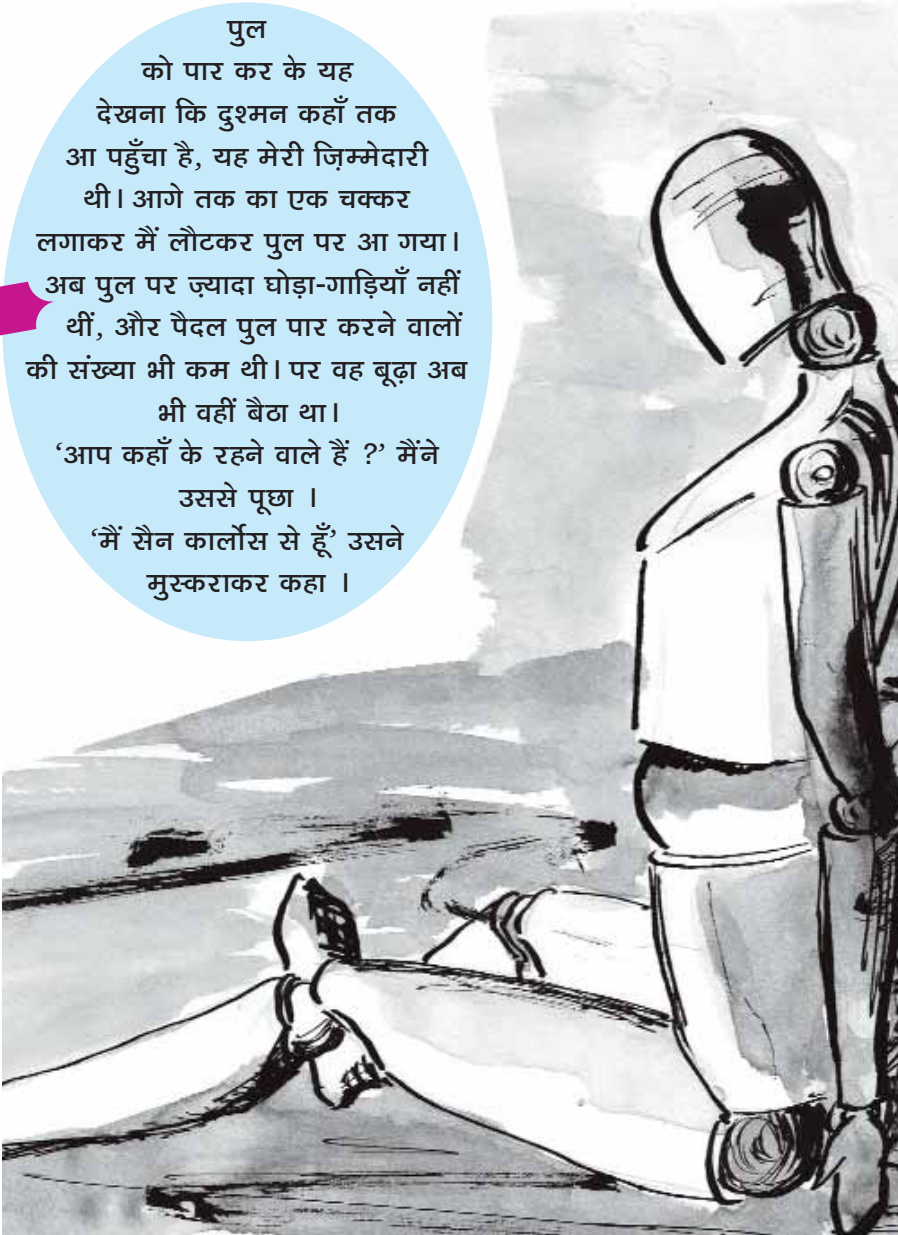 पुल
को पार कर के यह
देखना कि दुश्मन कहाँ तक
आ पहुँचा है, यह मेरी ज़िम्मेदारी
थी। आगे तक का एक चक्कर
लगाकर मैं लौटकर पुल पर आ गया।
अब पुल पर ज़्यादा घोड़ा-गाड़ियाँ नहीं
थीं, और पैदल पुल पार करने वालों
की संख्या भी कम थी। पर वह बूढ़ा अब
भी वहीं बैठा था।
‘आप कहाँ के रहने वाले हैं ?’ मैंने
उससे पूछा ।
‘मैं सैन कार्लोस से हूँ’ उसने
मुस्कराकर कहा ।